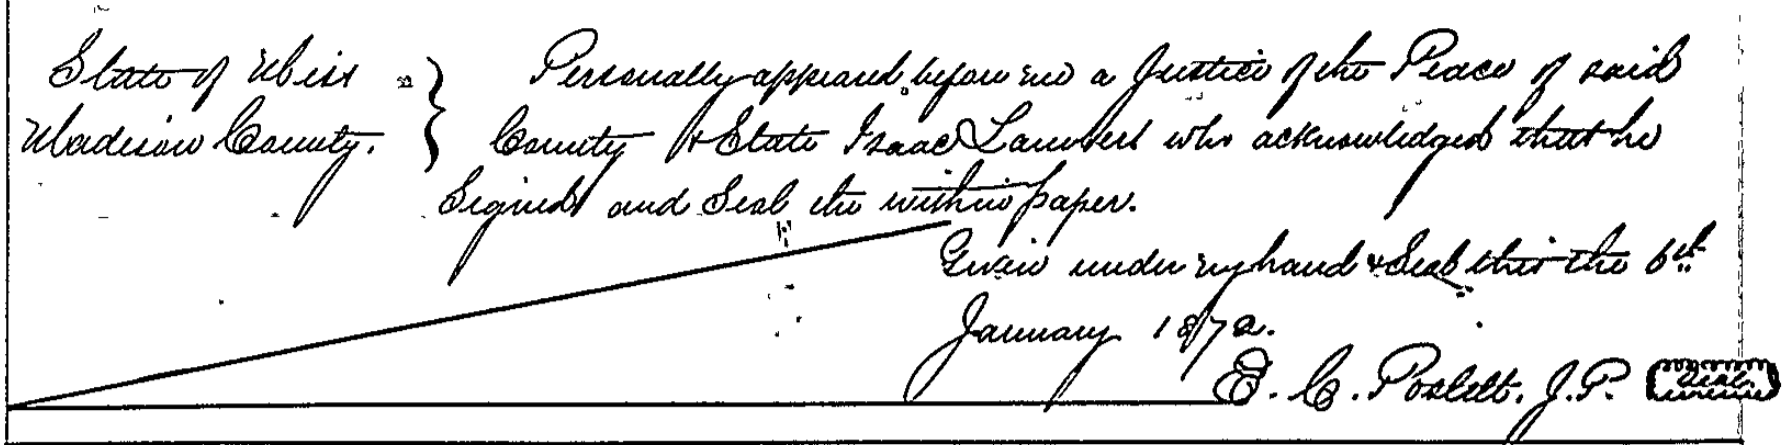 State of Miss } Personally appeard before me a Justice of the Peace of said
Madison County. } County & State Isaac Lambert who acknowledged that he
Signed and Seal the within paper.
Given under my hand & Seal this the 6th
January 1872.
E. C. Postell. J.P. Seal